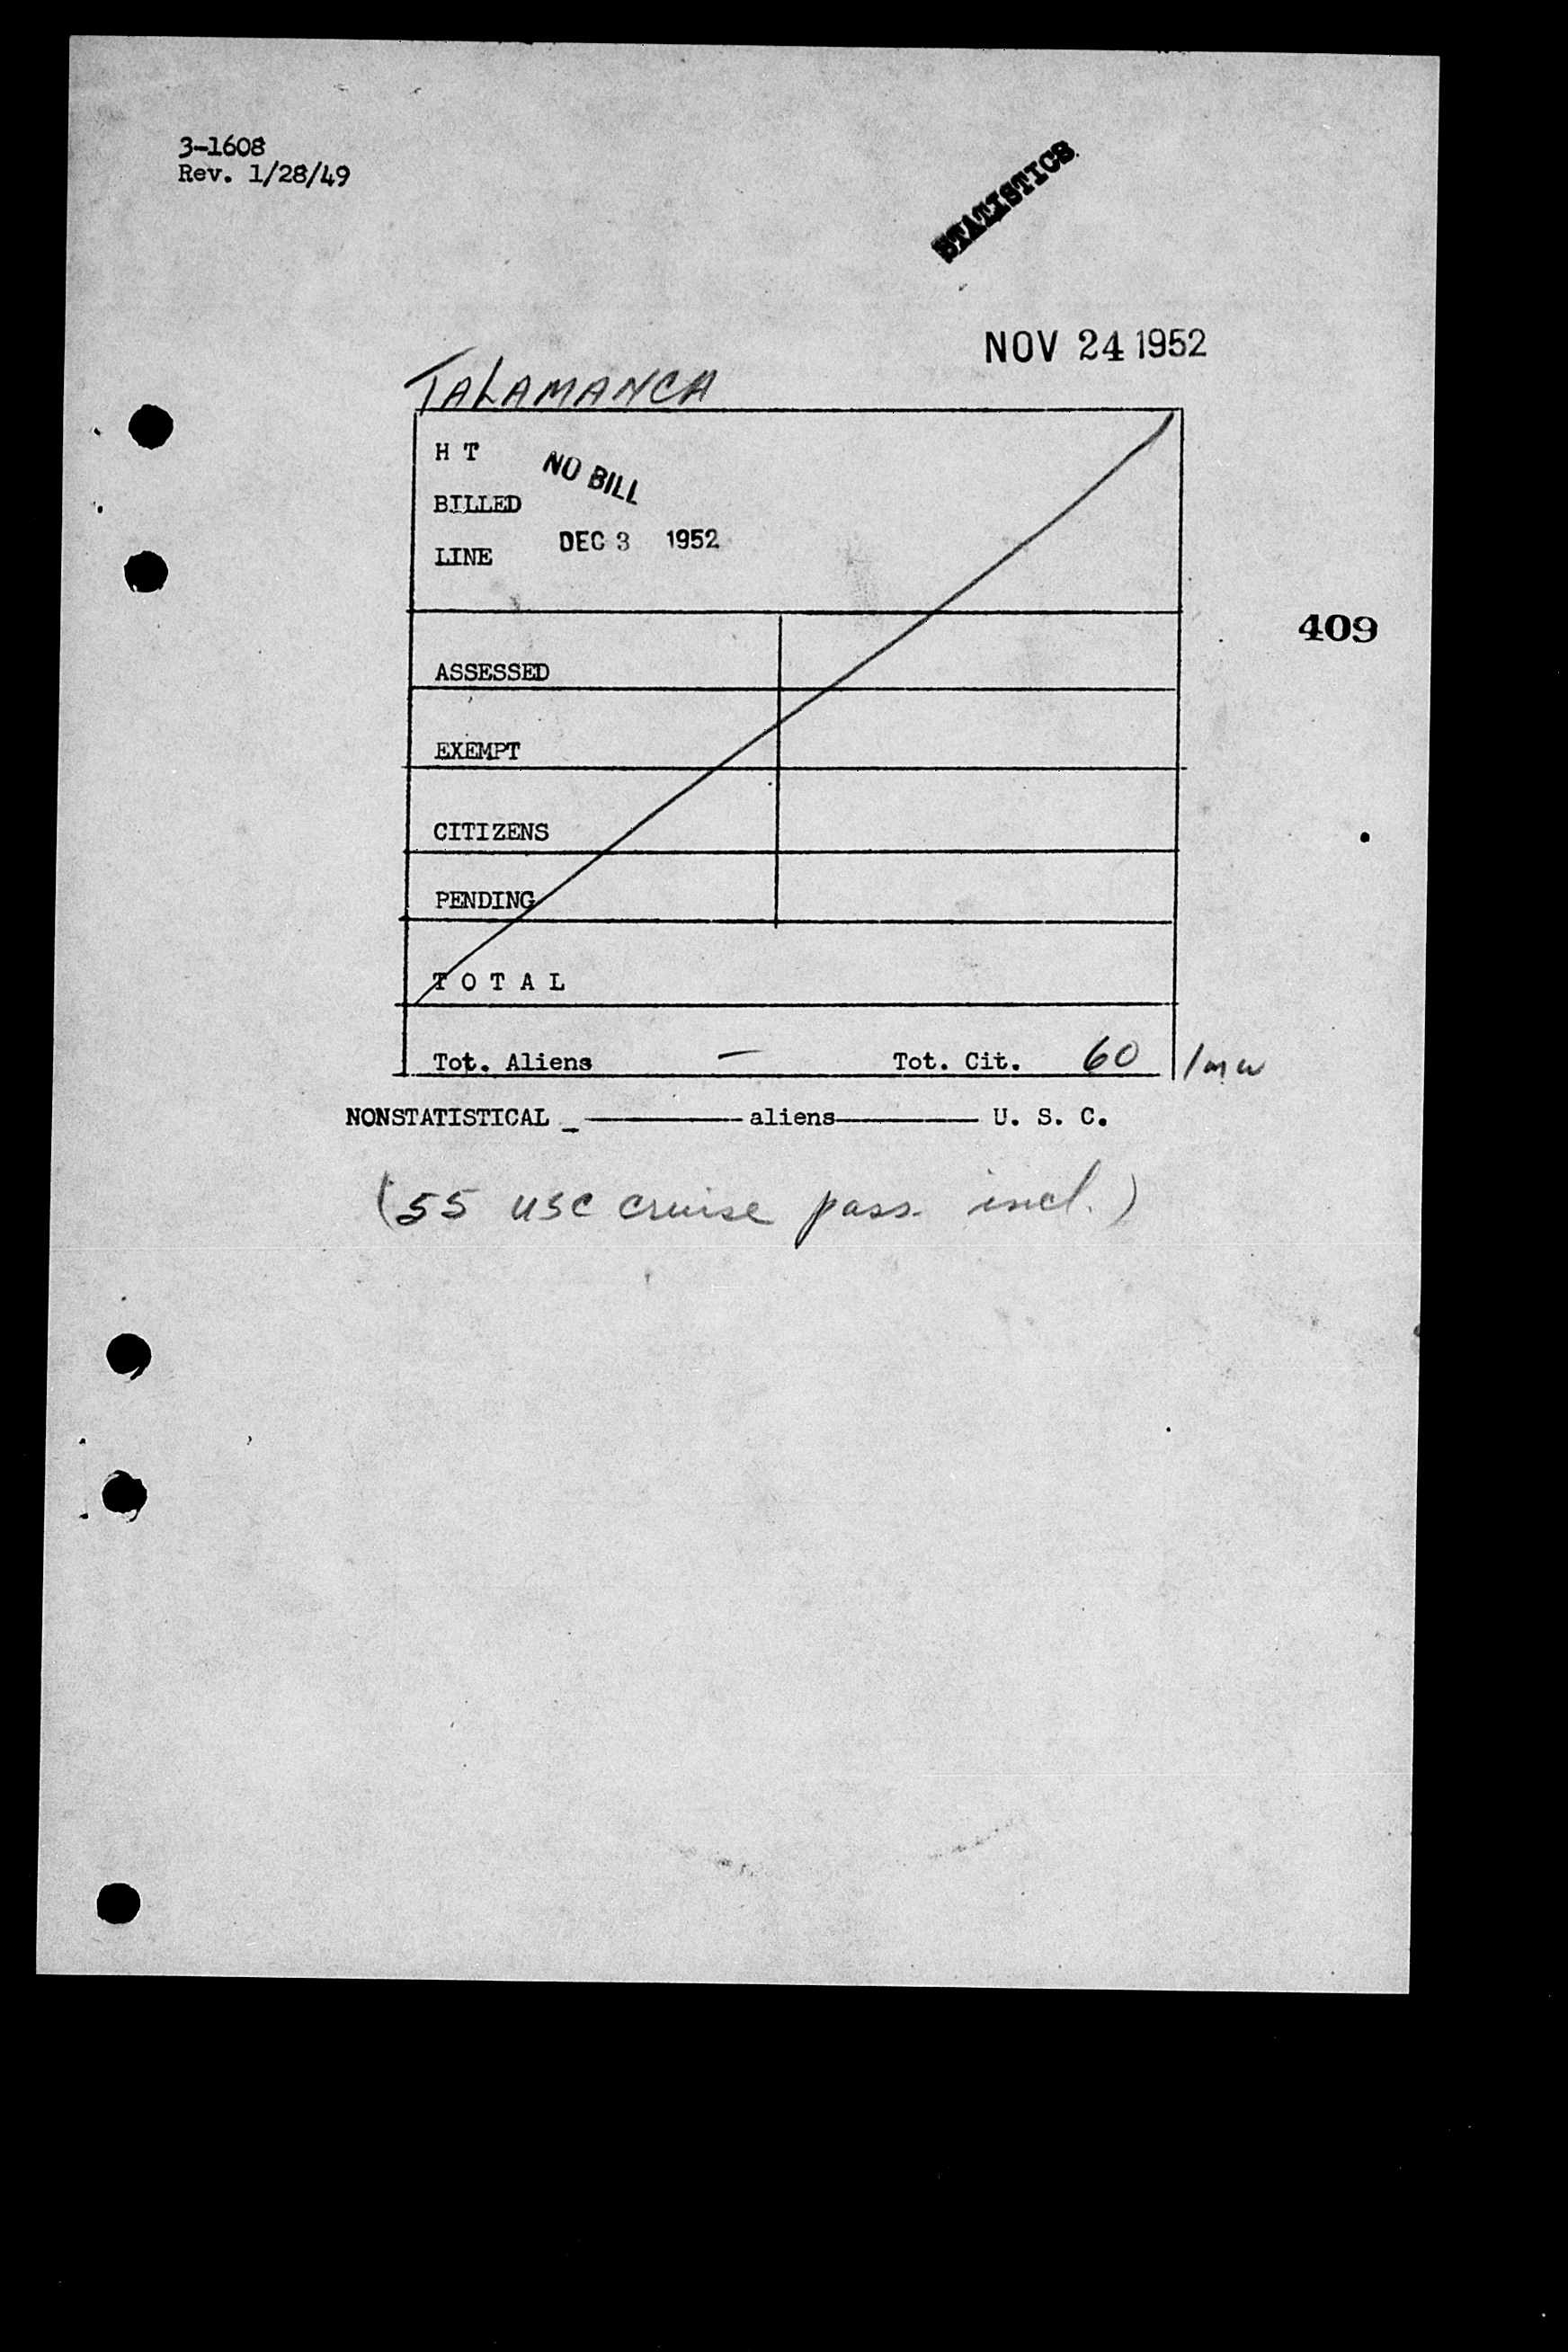 3-1608
Rev. 1/28/49
STATISTICS
NOV 24 1952
TALAMANCA
H T
NO BILL
BILLED
DEC 3 1952
LINE
409
ASSESSED
EXEMPT
CITIZENS
PENDING
T O T A L
Tot. Aliens — Tot. Cit. 60 /mw
NONSTATISTICAL _ ———— aliens ———— U. S. C.
(55 USC cruise pass. incl.)